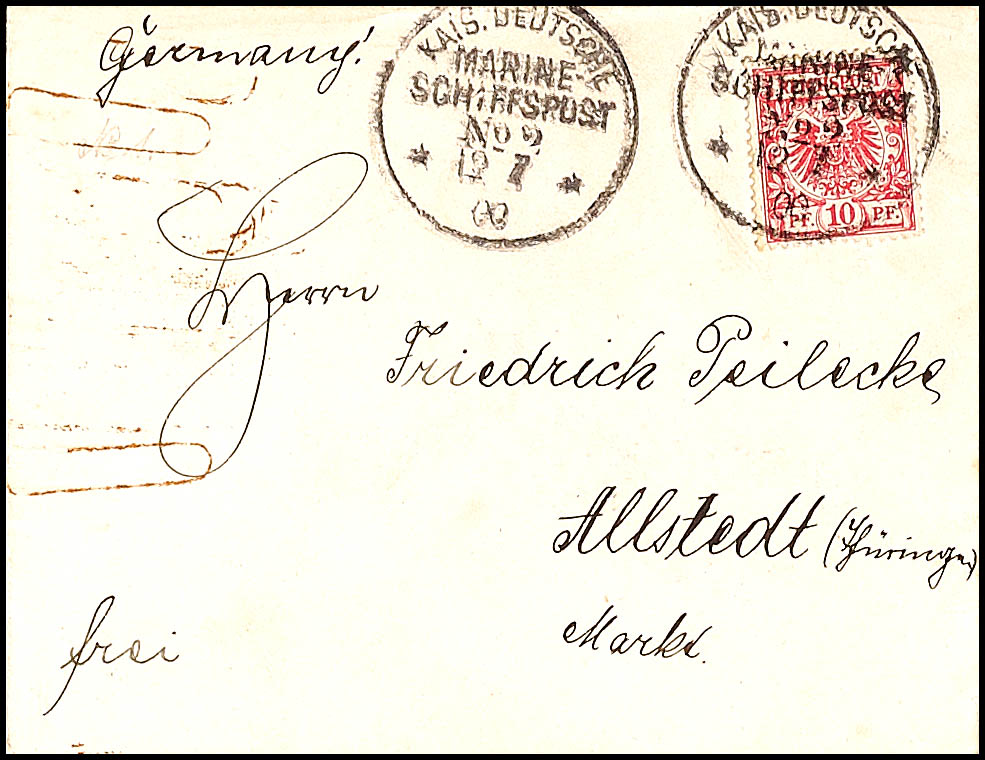 Germany!
KAIS. DEUTSCHE
MARINE-
SCHIFFSPOST
No 2
12 7
00
KAIS. DEUTSCHE
MARINE-
SCHIFFSPOST
REICHSPOST
No 2
PF. 10 PF.
Herrn
Friedrich Peilecke
Allstedt (Thüringen)
Markt.
frei